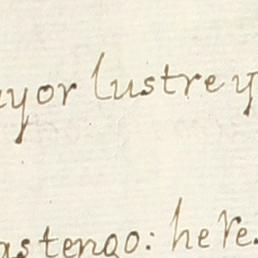 ayor lustre y
astengo: here.